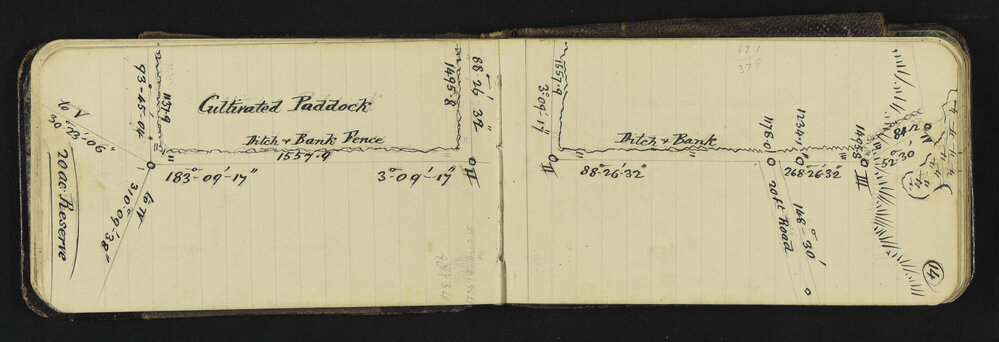 93°-45'-04"
1137.9
Cultivated Paddock
Ditch & Bank Fence
1557.9
1495.8
88° 26' 32"
to V
30° 23' 06"
20 ac Reserve
183°-09'-17"
3°-09'-17"
II
to IV
310°-09'-38"
1557.9
3°09'-17"
II
Ditch & Bank
88-26-32"
621
379
1178.0
1234.1
1495.8
III
268-26-32"
52°30'
84
20ft Road
148°-30'
14